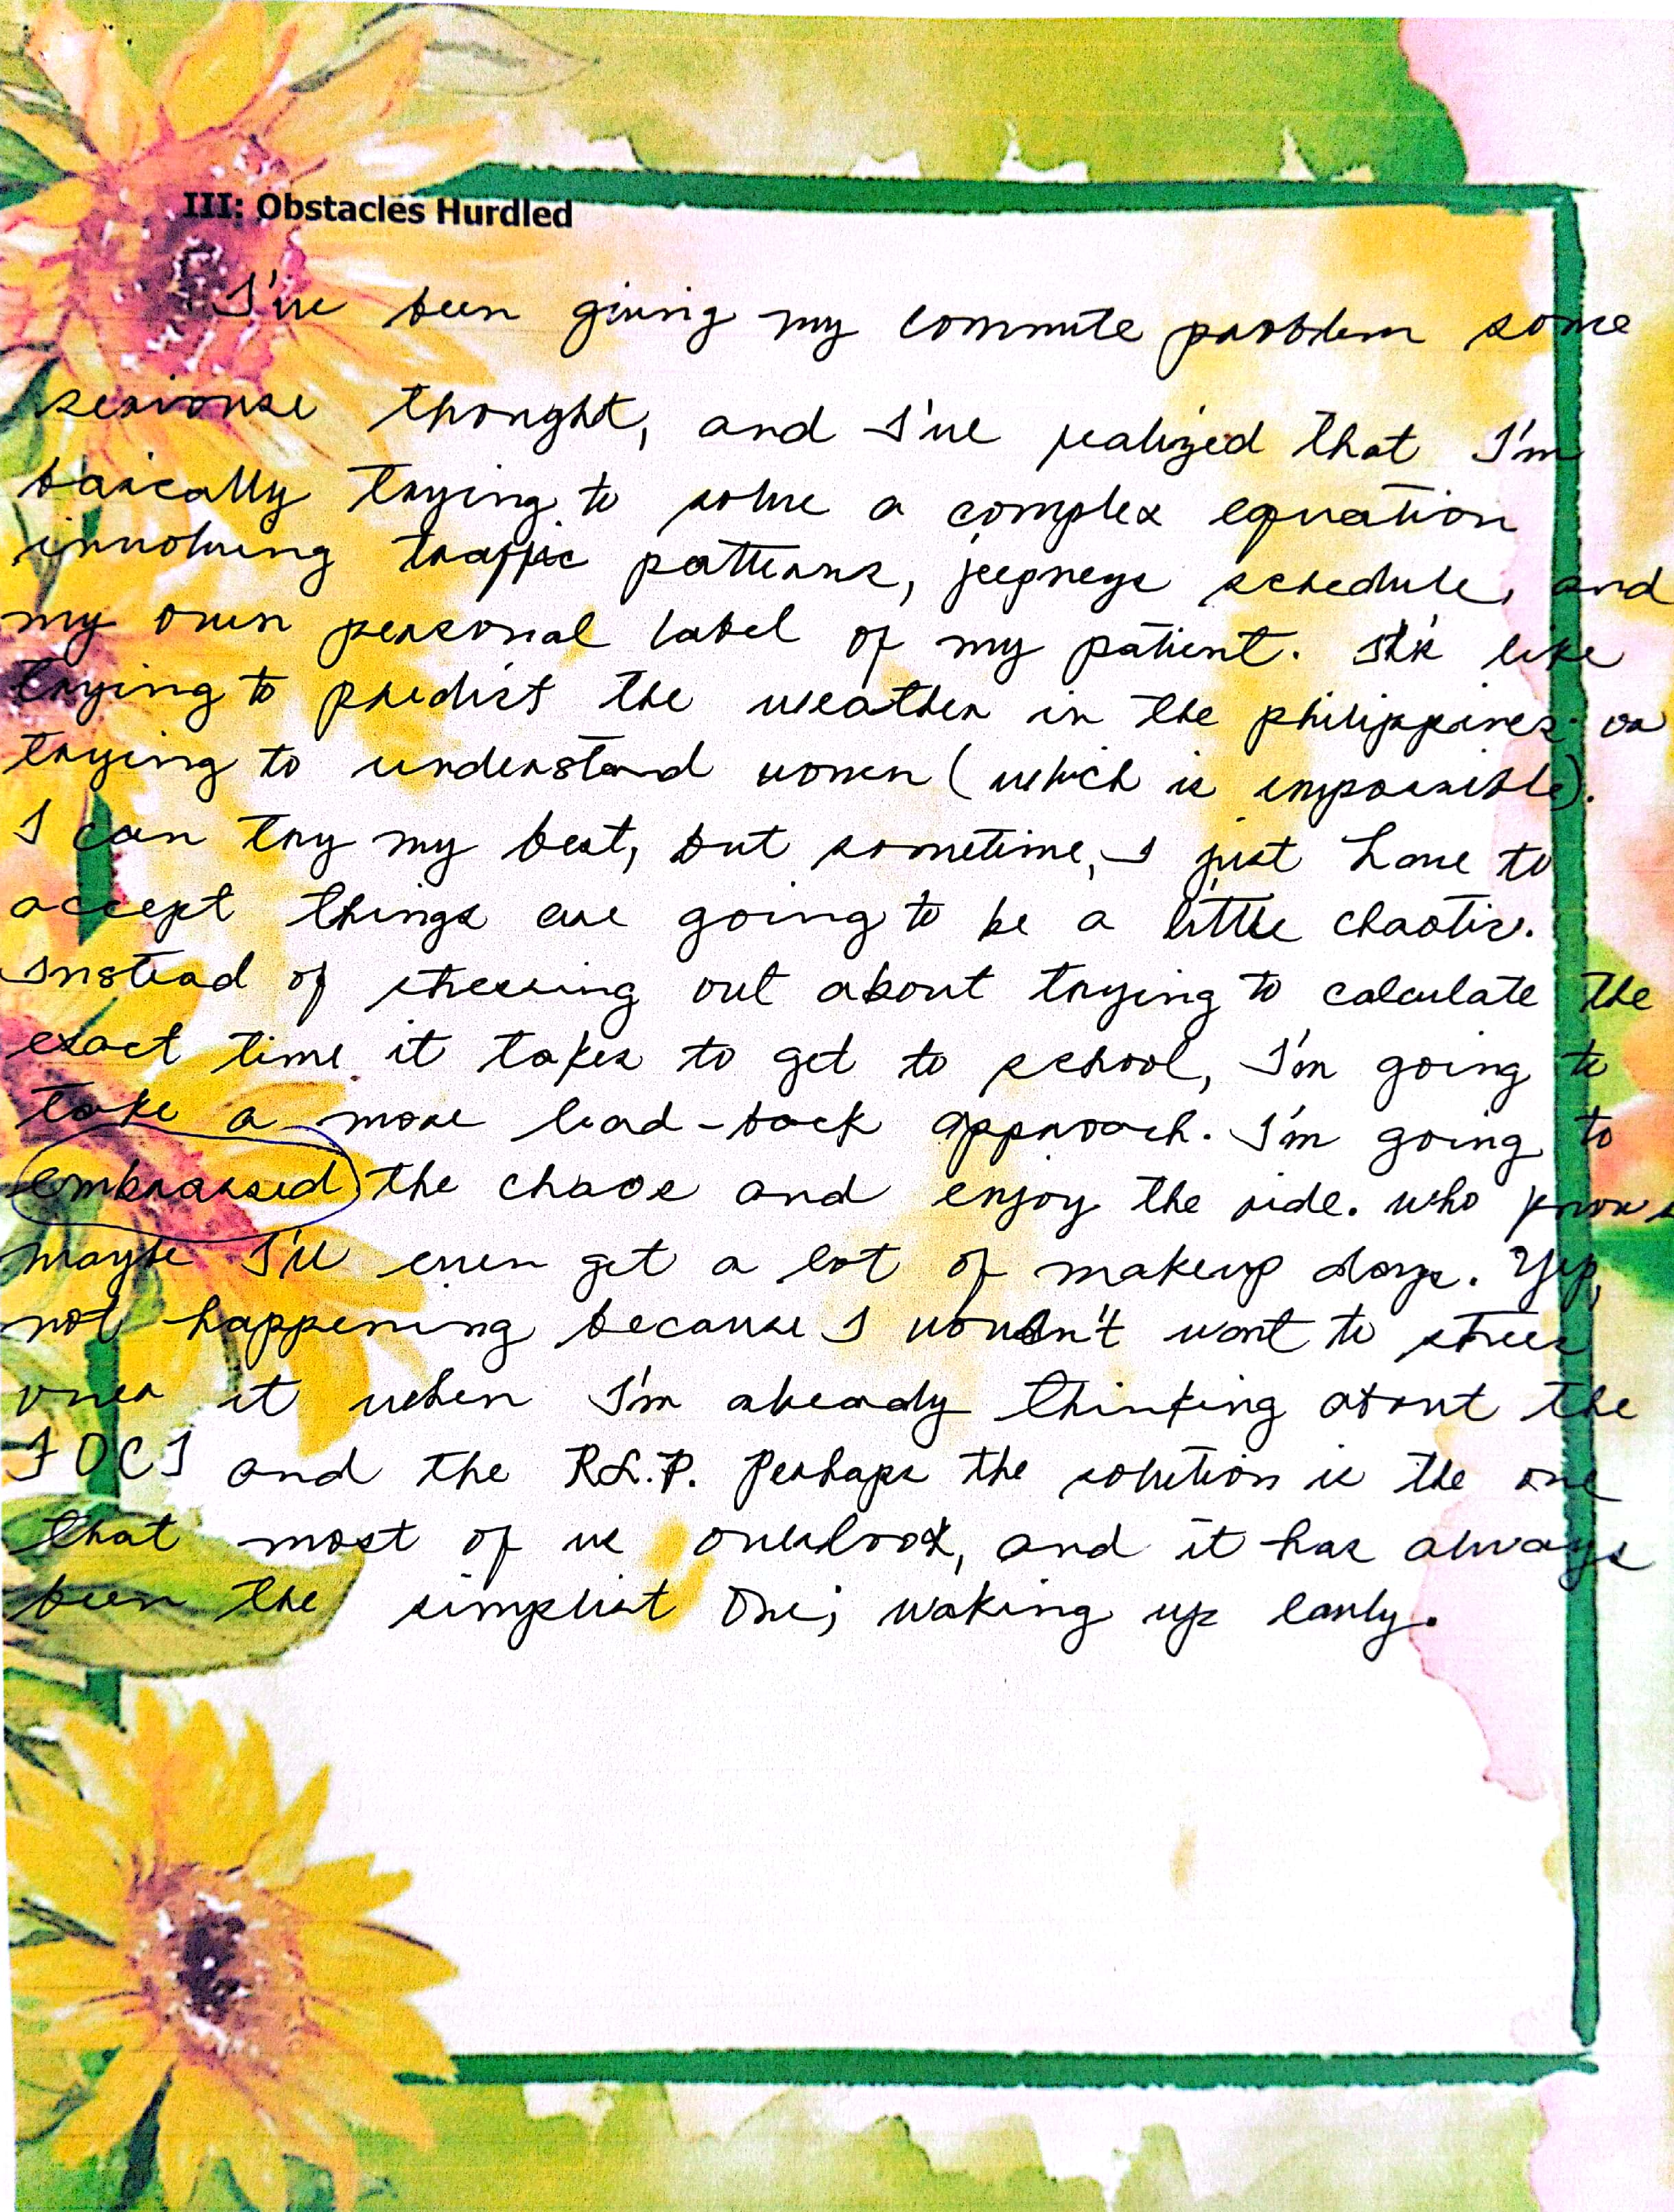 III: Obstacles Hurdled
I've been giving my commute problem some
seriouse thought, and I've realized that I'm
basically trying to solve a complex equation
involving traffic patterns, jeepneys schedule, and
my own personal label of my patient. It's like
trying to predict the weather in the philippines or
trying to understand women (which is impossible).
I can try my best, but sometime, I just have to
accept things are going to be a little chaotic.
Instead of stressing out about trying to calculate the
exact time it takes to get to school, I'm going to
take a more lead-back approach. I'm going to
embrassed the chaos and enjoy the ride. who knows
maybe I'll even get a lot of makeup days. Yep,
not happening because I wouldn't want to stress
over it when I'm already thinking about the
and the R.L.P. Perhaps the solution is the one
that most of us overlook, and it has always
been the simplist one; waking up early.